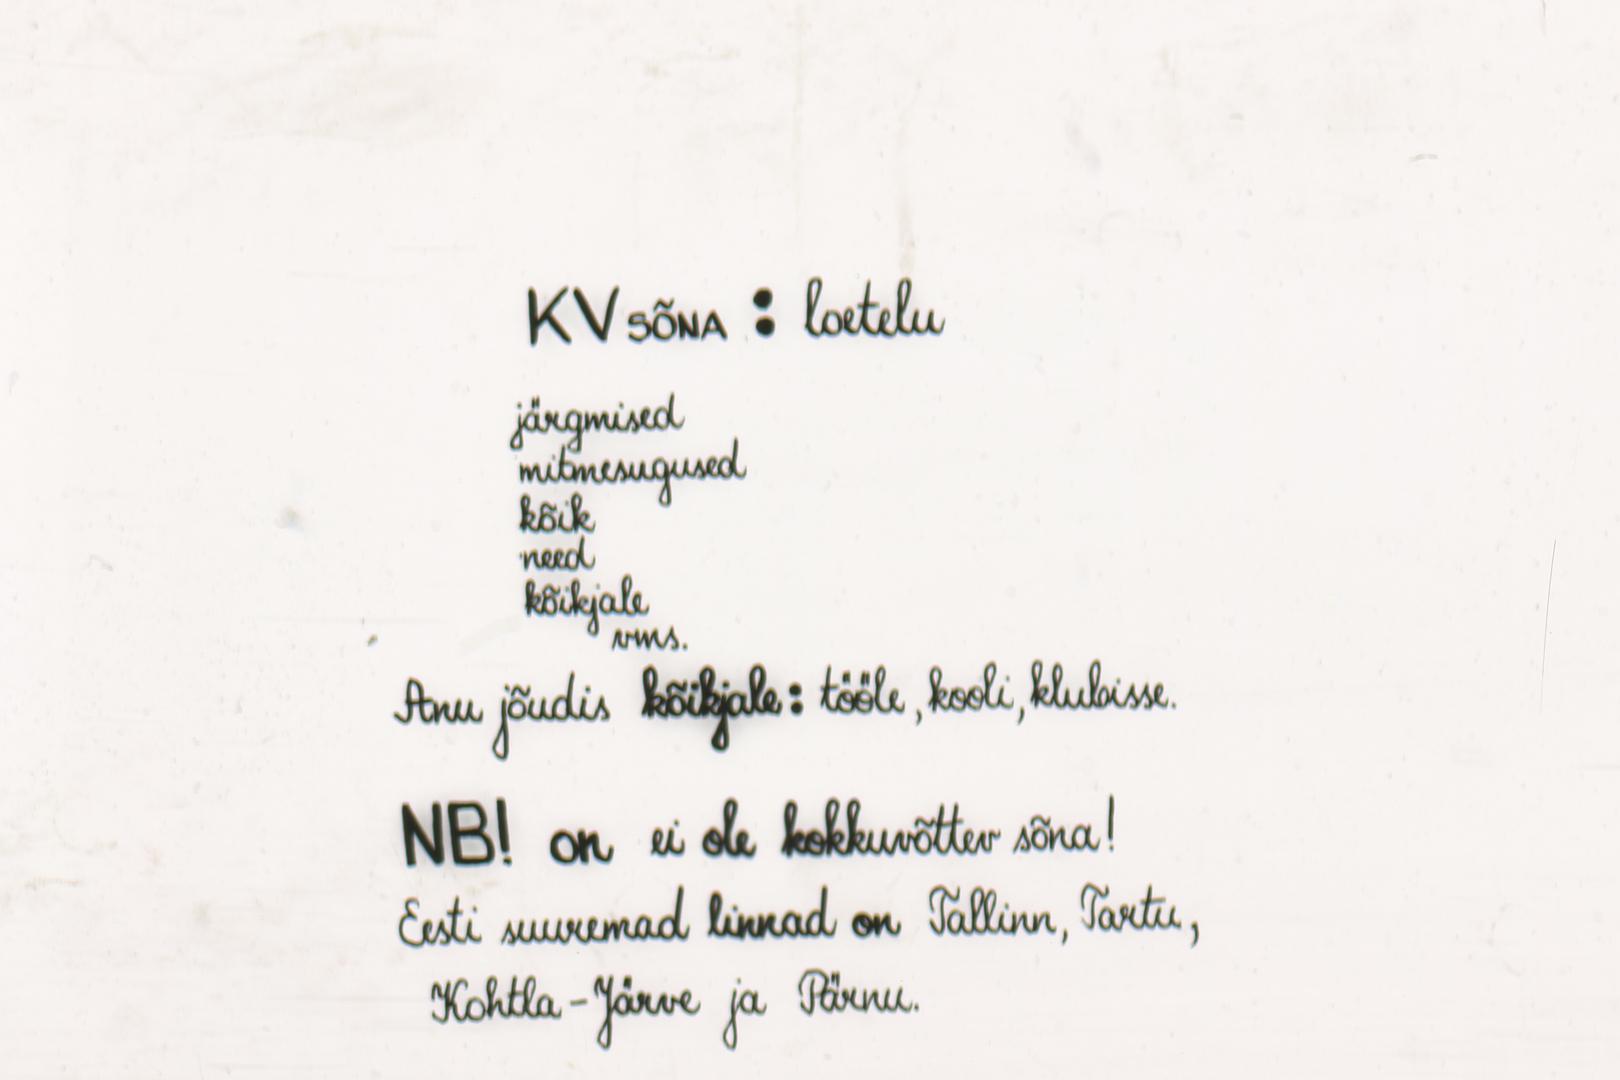 KV SÕNA : loetelu
järgmised
mitmesugused
kõik
need
kõikjale
vms.
Anu jõudis kõikjale: tööle, kooli, klubisse.
NB! on ei ole kokkuvõttev sõna!
Eesti suuremad linnad on Tallinn, Tartu,
Kohtla-Järve ja Pärnu.